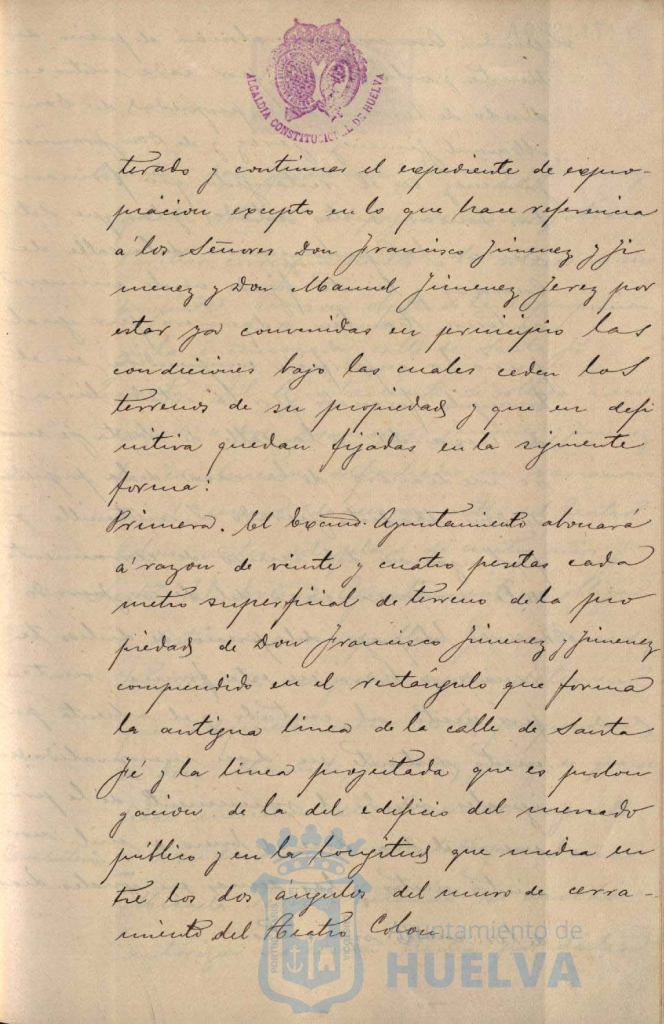 ALCALDIA CONSTITUCIONAL DE HUELVA
terado y continuar el expediente de expro-
piacion excepto en lo que hace referencia
á los Señores Don Francisco Jimenez y Ji
menez y Don Manuel Jimenez Jerez por
estar ya convenidas en principio las
condiciones bajo las cuales ceden los
terrenos de su propiedad y que en defi
nitiva quedan fijadas en la siguiente
forma:
Primera. El Excmo. Ayuntamiento abonará
á razon de veinte y cuatro pesetas cada
metro superficial de terreno de la pro
piedad de Don Francisco Jimenez y Jimenez
comprendido en el rectángulo que forma
la antigua linea de la calle de Santa
Fé y la linea proyectada que es prolon
gacion de la del edificio del mercado
público y en la longitud que media en
tre los dos ángulos del muro de cerra-
miento del Teatro Colon
Ayuntamiento de
HUELVA